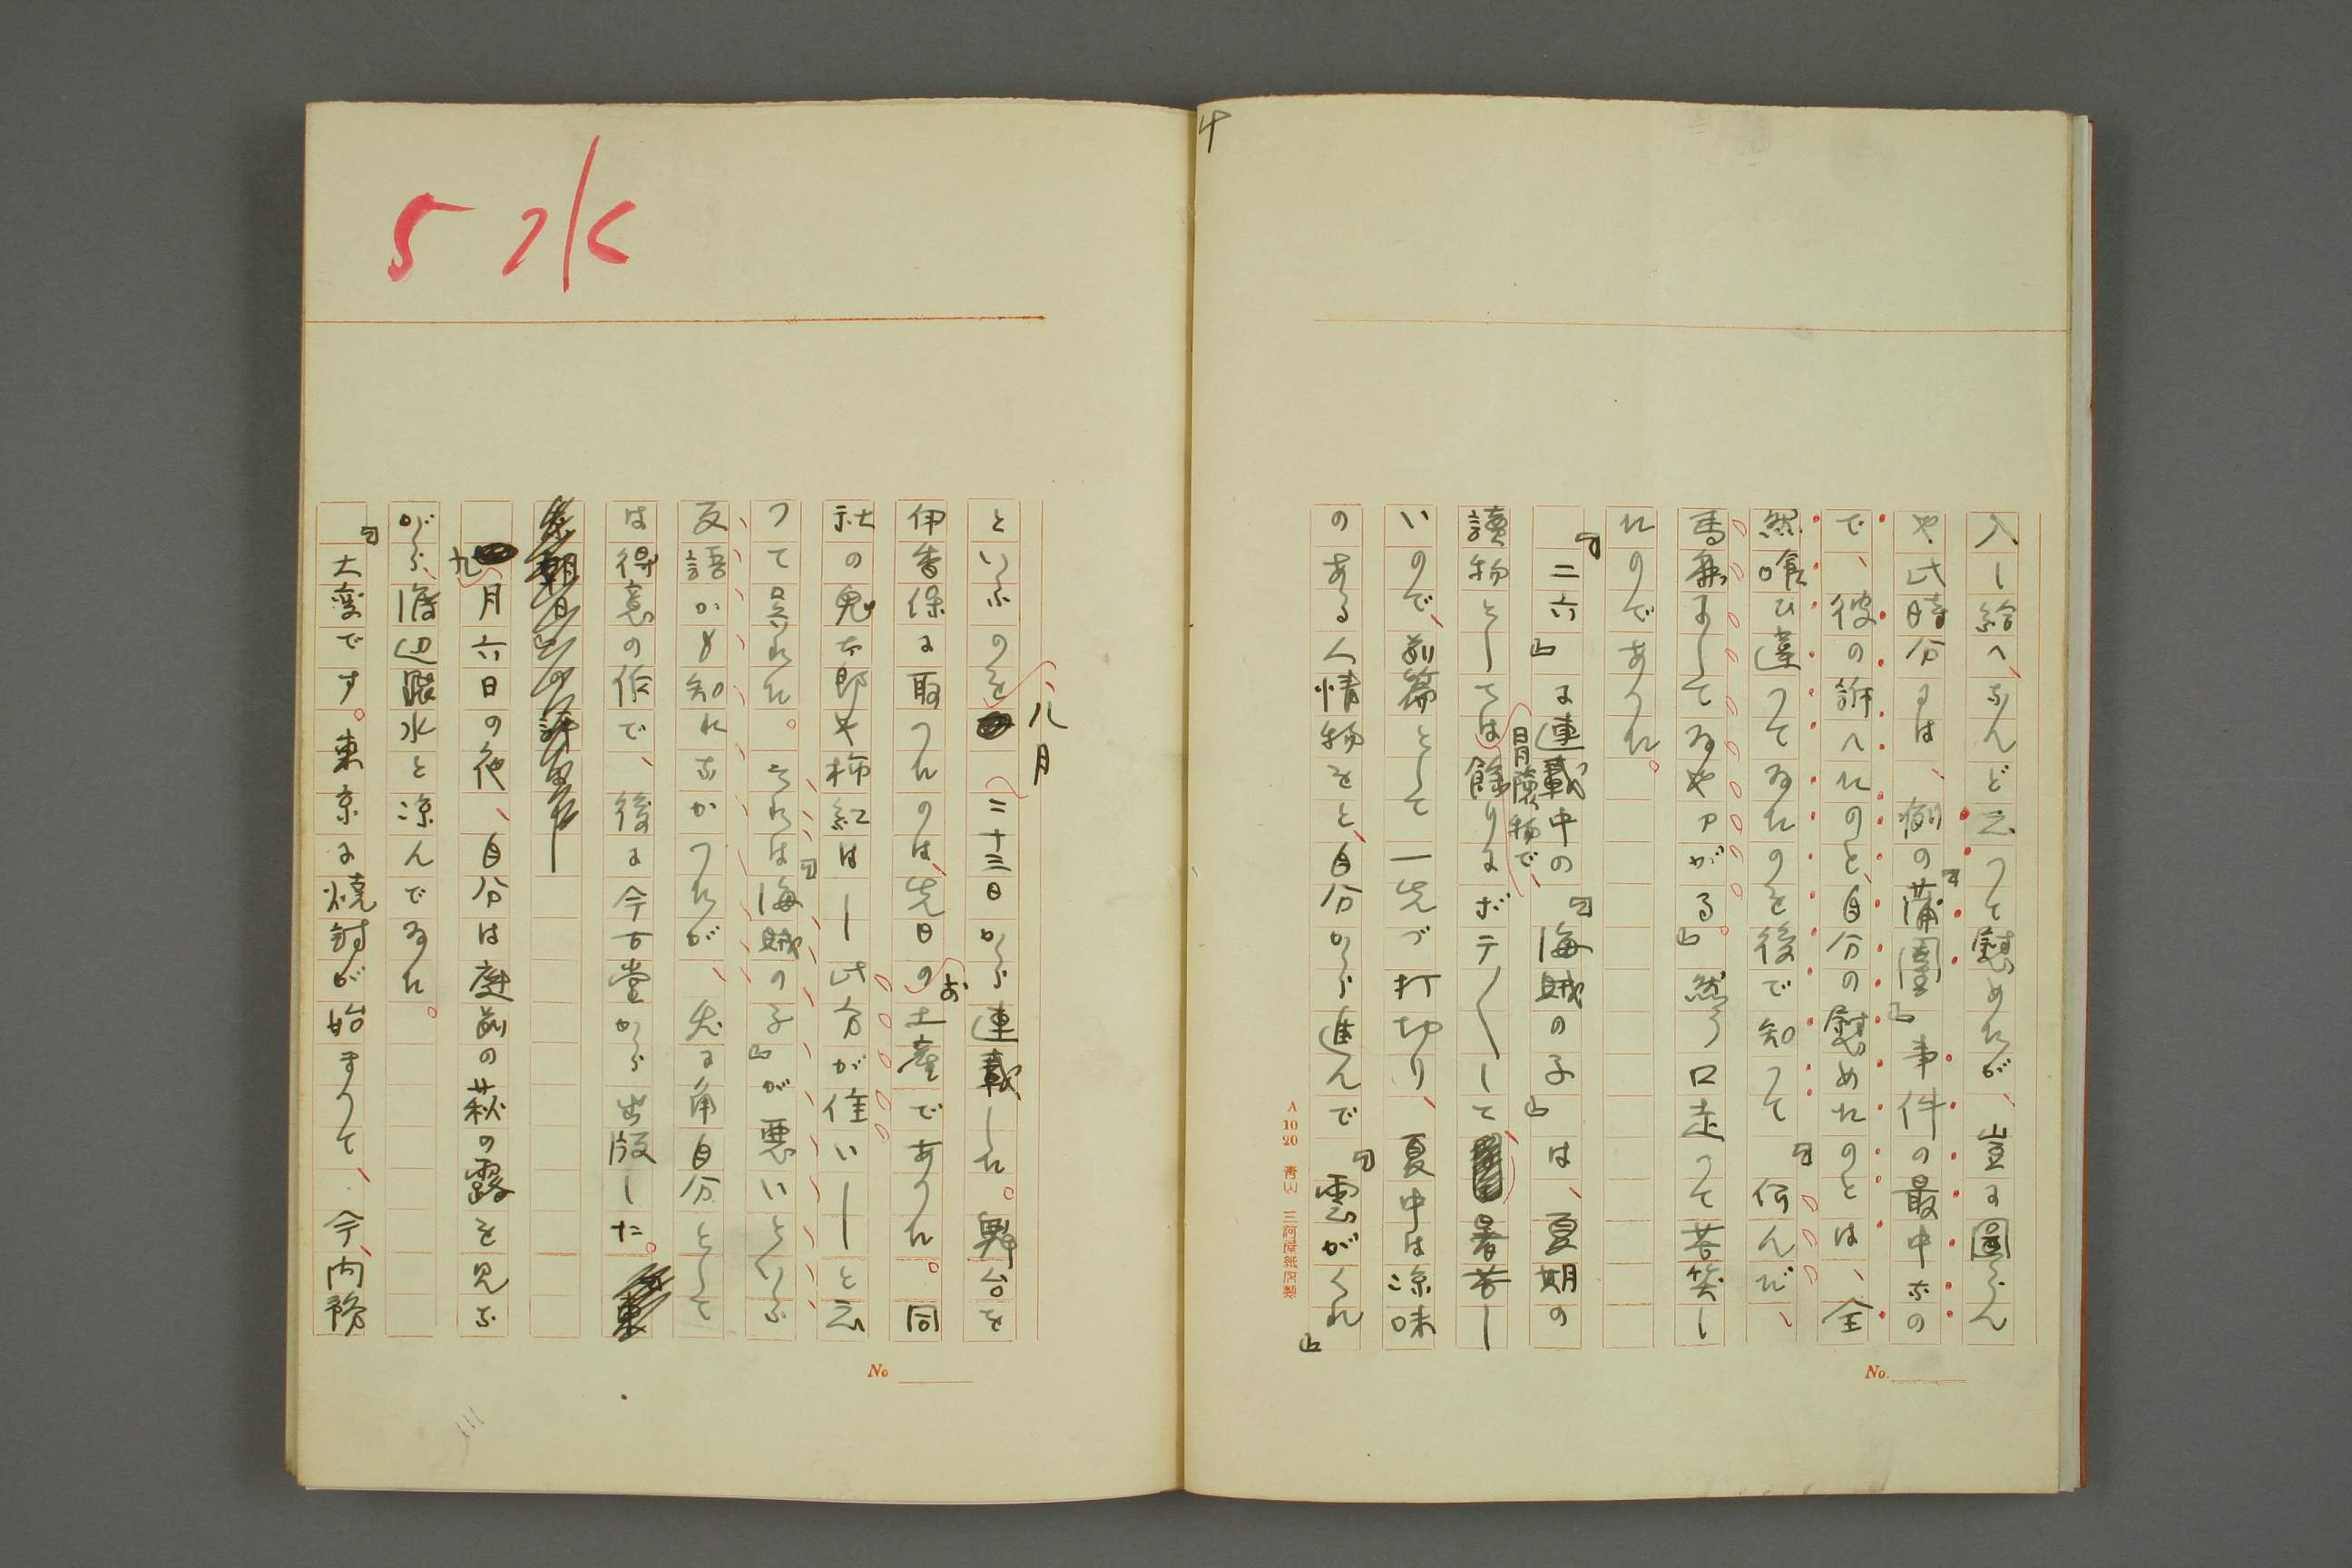 入し給へ、なんど云つて慰めたが、豈に圖らん
や、此時分には、例の『蒲團』事件の最中なの
で、彼の訴へたのと、自分の慰めたのとは、全
然喰ひ違つてゐたのを後で知つて『何んだ、
馬鹿にしてゐやァがる。』然う口走つて苦笑し
たのであつた。
『二六』に連載中の『海賊の子』は、夏期の
讀物としては餘りにボテ〳〵して暑苦し
日月陰物で、
いので、前篇として一先づ打切り、夏中は涼味
のある人情物をと、自分から進んで『雲がくれ』
4
A 10 20 青山 三河屋紙店製
No.
5水
八月
といふのを二十三日から連載した。舞台を
伊香保に取つたのは、先日のお土産であつた。同
社の鬼太郎や柿紅は──此方が佳い──と云
つて呉れた。それは『海賊の子』が悪いといふ
反語かも知れなかつたが、兎に角自分として
は得意の作で、後に今古堂から出版した。
九月六日の夜、自分は庭前の萩の露を見な
がら、渡辺默水と涼んでゐた。
『大変です。東京に焼討が始まつて、今、内務
No